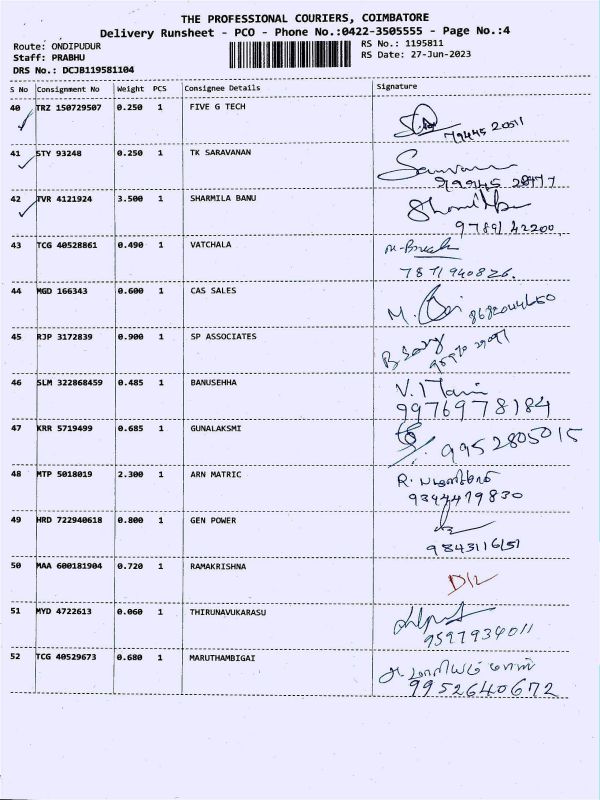 THE PROFESSIONAL COURIERS, COIMBATORE
Delivery Runsheet - PCO - Phone No.:0422-3505555 - Page No.:4
Route: ONDIPUDUR
RS No.: 1195811
Staff: PRABHU
RS Date: 27-Jun-2023
DRS No.: DCJB119581104
S No Consignment No Weight PCS Consignee Details Signature
40 TRZ 150729507 0.250 1 FIVE G TECH
41 STY 93248 0.250 1 TK SARAVANAN
42 TVR 4121924 3.500 1 SHARMILA BANU
97891 42200
43 TCG 40528861 0.490 1 VATCHALA
7871940826.
44 MGD 166343 0.600 1 CAS SALES
45 RJP 3172839 0.900 1 SP ASSOCIATES
46 SLM 322868459 0.485 1 BANUSEHHA
V. Mani
9976978184
47 KRR 5719499 0.685 1 GUNALAKSMI
9952805015
48 MTP 5018019 2.300 1 ARN MATRIC
9344479830
49 HRD 722940618 0.800 1 GEN POWER
9843116151
50 MAA 600181904 0.720 1 RAMAKRISHNA
51 MYD 4722613 0.060 1 THIRUNAVUKARASU
9597934011
52 TCG 40529673 0.680 1 MARUTHAMBIGAI
9952640672